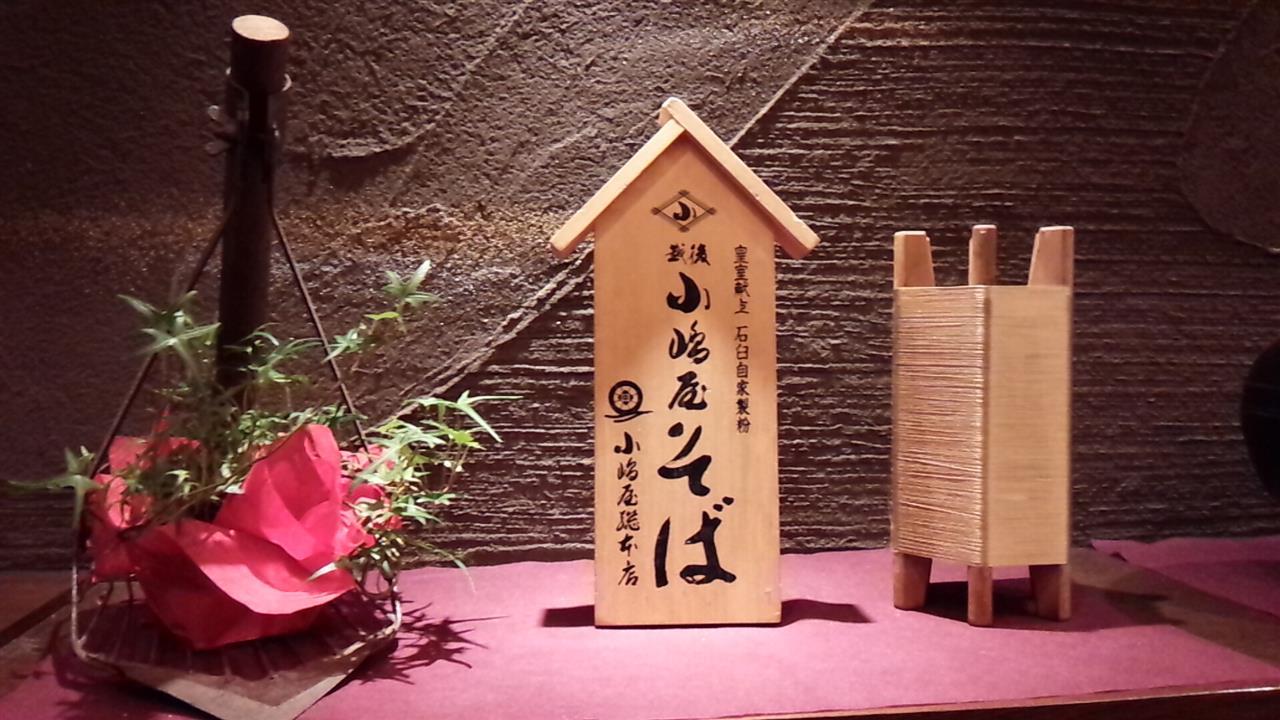 小
皇室献上 石臼自家製粉
越後
小嶋屋そば
小嶋屋総本店